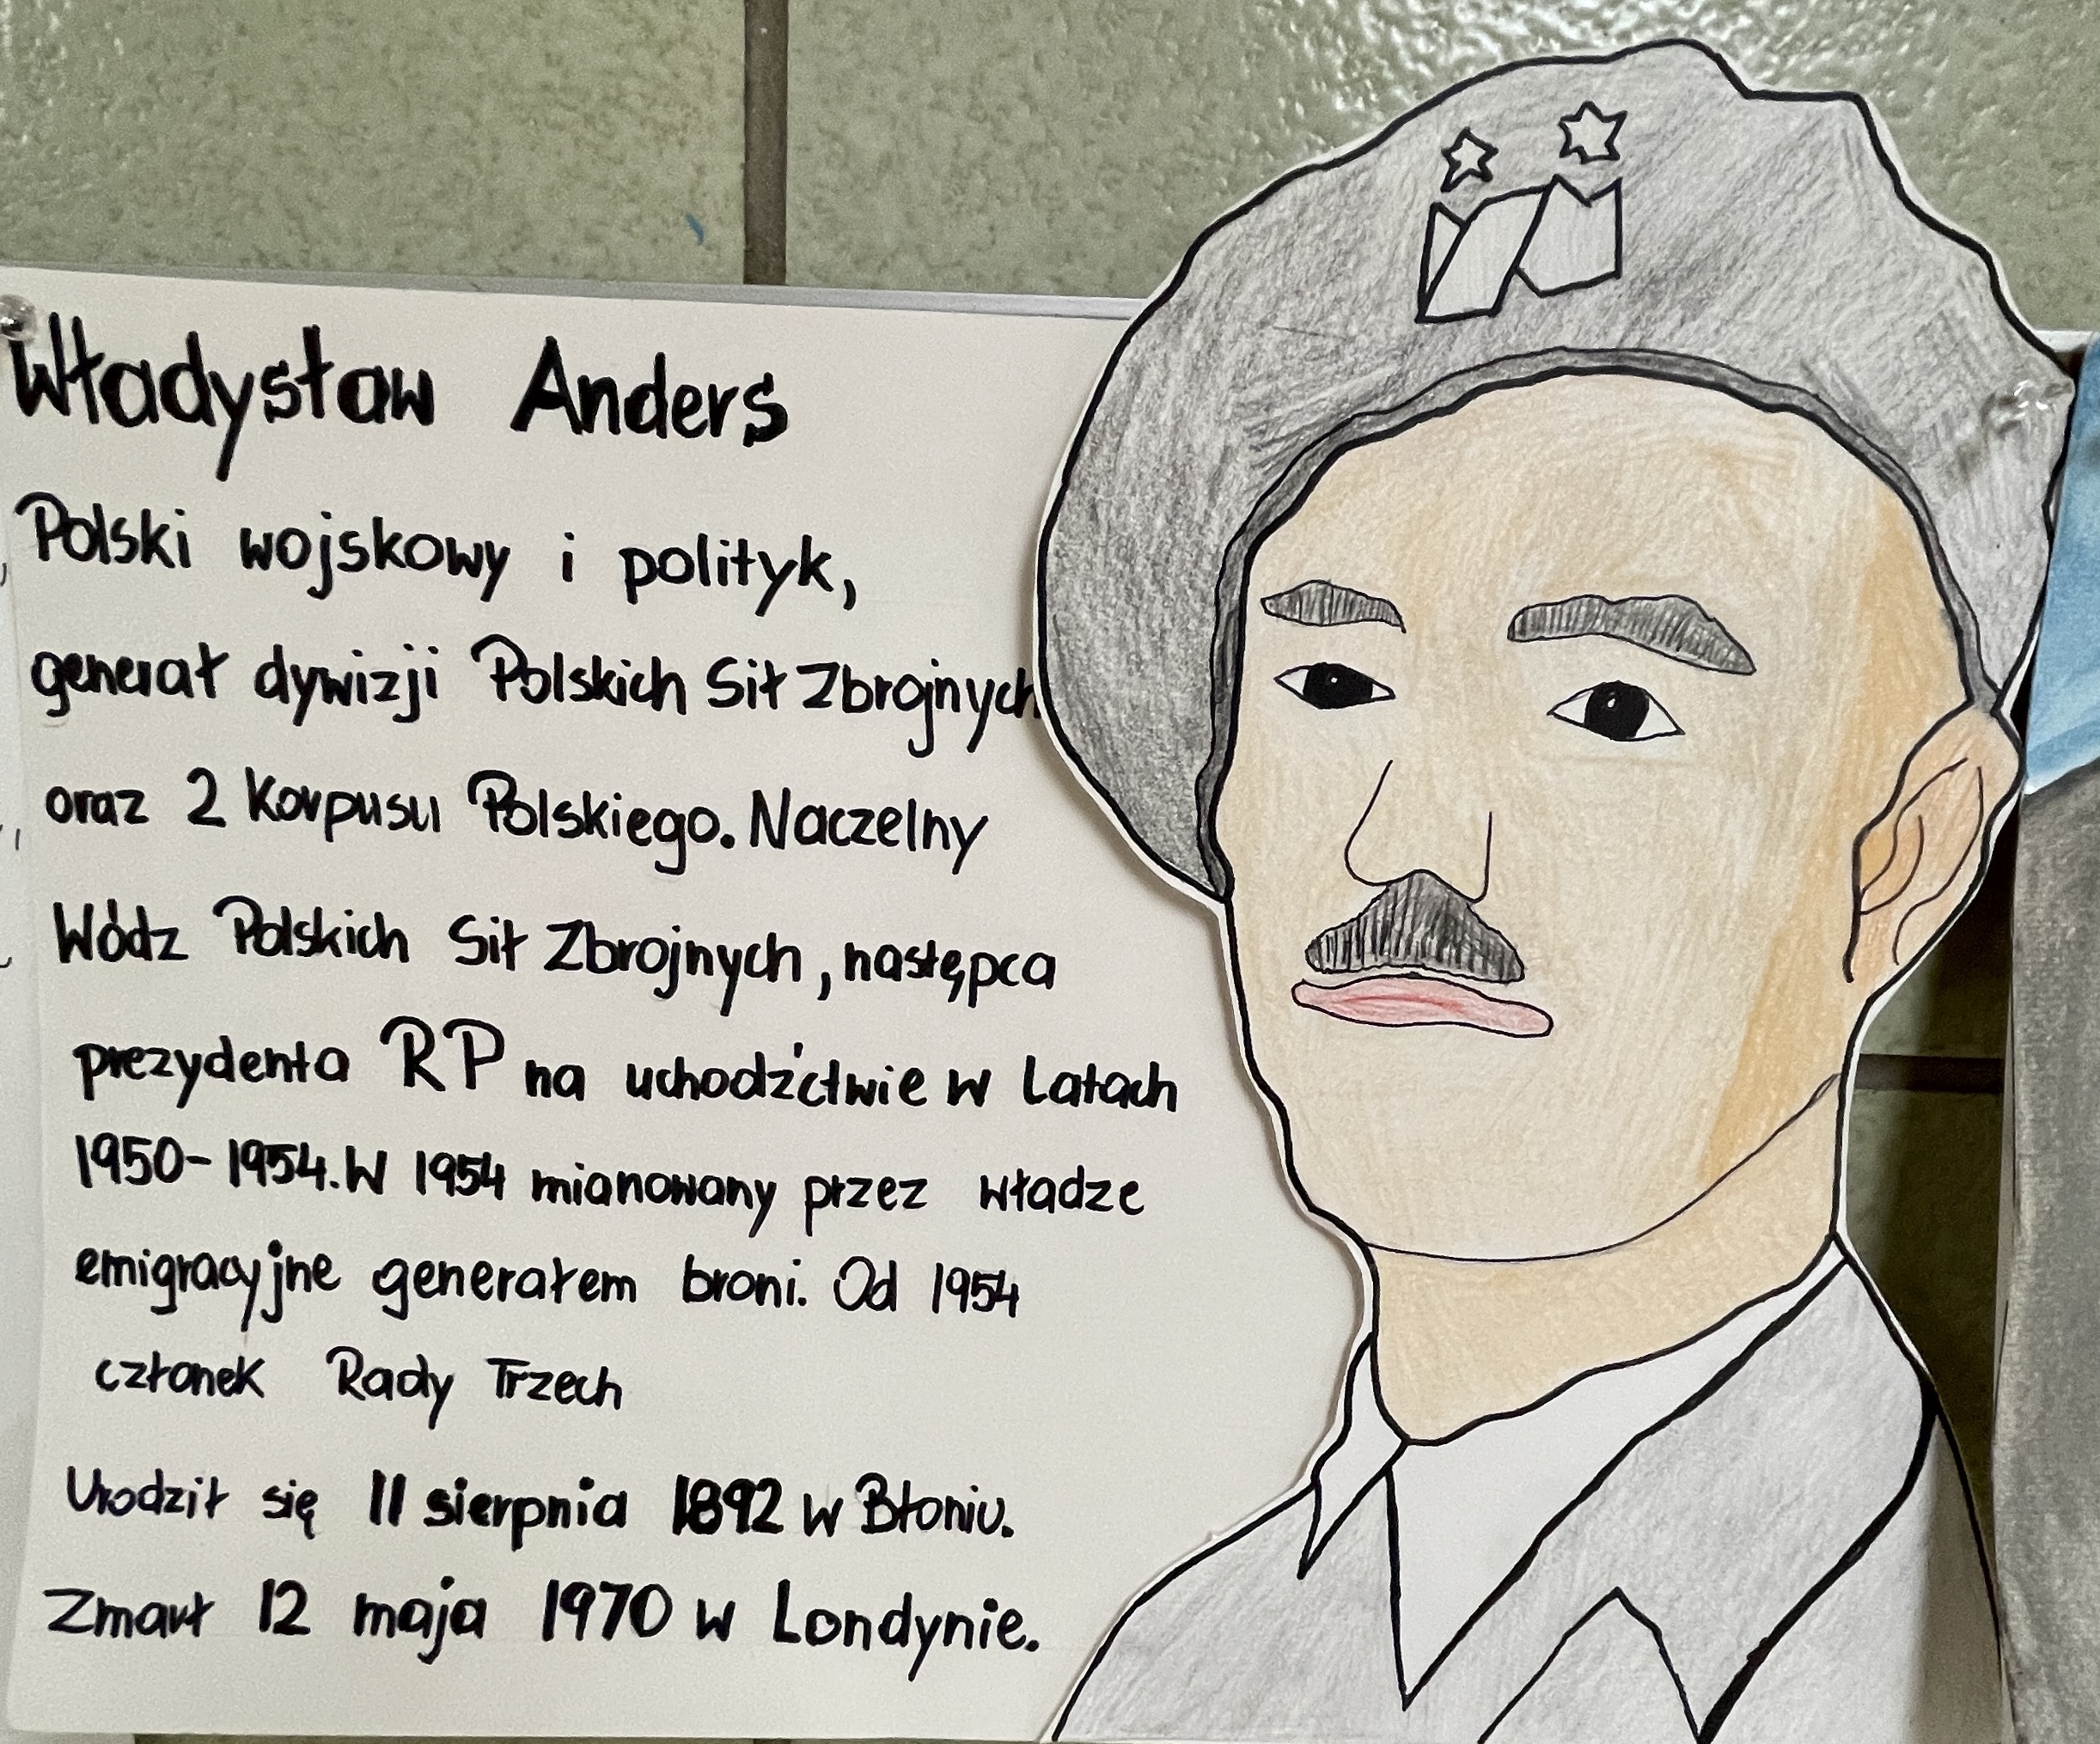 Władysław Anders
Polski wojskowy i polityk,
generał dywizji Polskich Sił Zbrojnych
oraz 2 Korpusu Polskiego. Naczelny
Wódz Polskich Sił Zbrojnych, następca
prezydenta RP na uchodźctwie w Latach
1950-1954. W 1954 mianowany przez władze
emigracyjne generałem broni. Od 1954
członek Rady Trzech
Urodził się 11 sierpnia 1892 w Błoniu.
Zmarł 12 maja 1970 w Londynie.